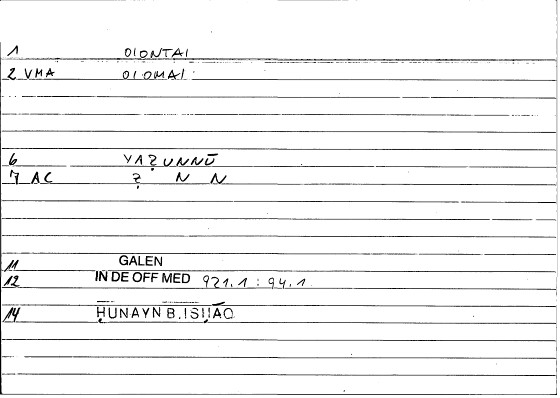 1 OIONTAI
2 VMA OIOMAI
6 YAẒUNNŪ
7 AC Ẓ N N
11 GALEN
12 IN DE OFF MED 921.1 : 94.1
14 ḤUNAYN B. ISḤĀQ